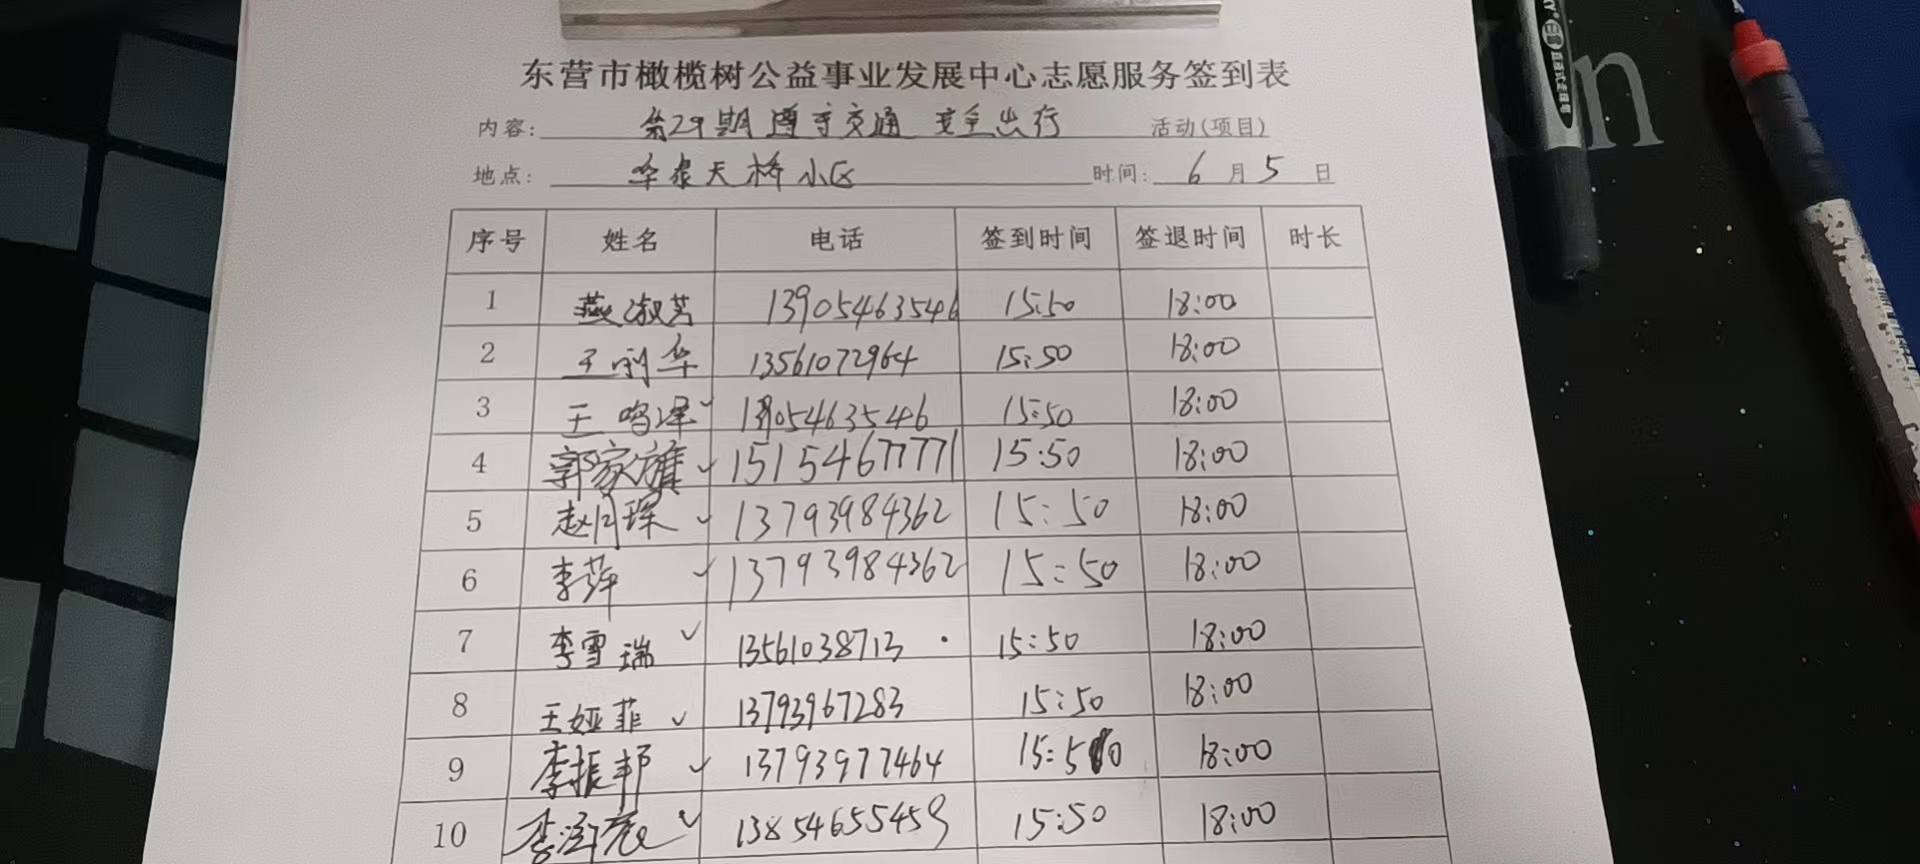 东营市橄榄树公益事业发展中心志愿服务签到表
内容: 第29期 遵守交通 安全出行 活动(项目)
地点: 华泉天桥小区 时间: 6月5日
序号 姓名 电话 签到时间 签退时间 时长
1 燕淑芳 13905463546 15:50 18:00
2 王丽华 13561072964 15:50 18:00
3 王鸣泽 13905463546 15:50 18:00
4 郭家旗 15154677771 15:50 18:00
5 赵月琛 13793984362 15:50 18:00
6 李萍 13793984362 15:50 18:00
7 李雪瑞 13561038713 15:50 18:00
8 王娅菲 13793967283 15:50 18:00
9 李振邦 13793977464 15:50 18:00
10 李泽宸 13854655459 15:50 18:00